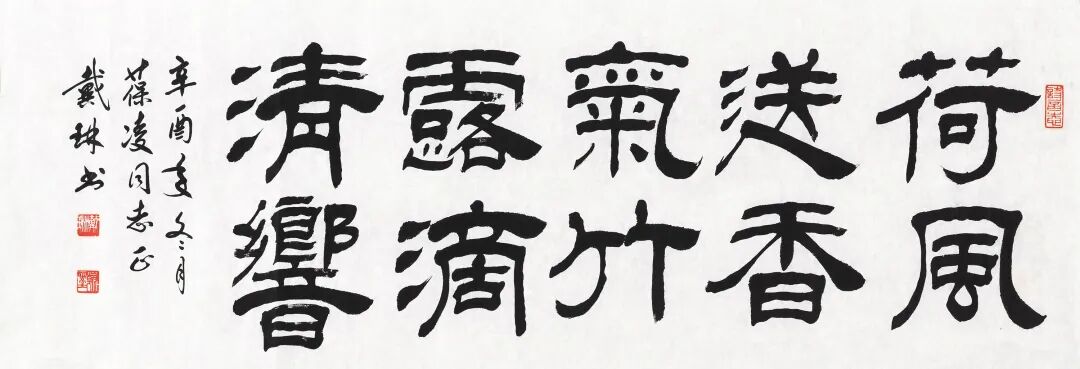 荷風
送香
氣竹
露滴
清響
辛酉年冬月
葆凌同志正
戴琳书